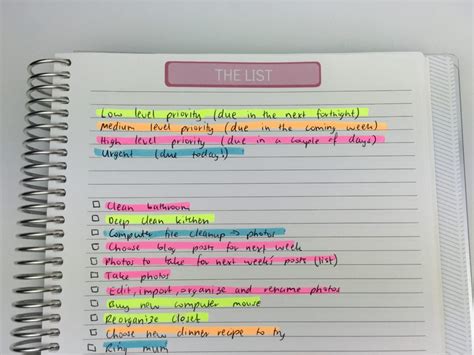 THE LIST
Low level priority (due in the next fortnight)
Medium level priority (due in the coming week)
High level priority (due in a couple of days)
Urgent (due today!)
Clean bathroom
Deep clean kitchen
Computer file cleanup → photos
Choose blog posts for next week
Photos to take for next week's posts (list)
Take photos
Edit, import, organise and rename photos
Buy new computer mouse
Reorganise closet
Choose new dinner recipe to try
Ring mum